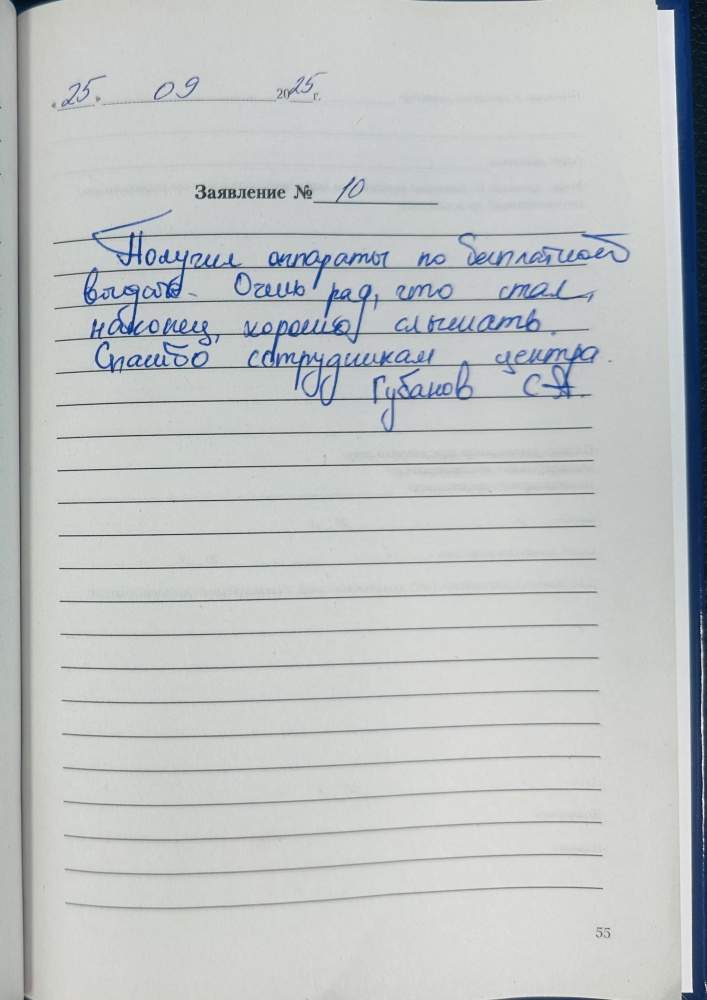 «25» 09 2025 г.
Заявление № 10
Получил аппараты по бесплатной
выдаче. Очень рад, что стал,
наконец, хорошо слышать.
Спасибо сотрудникам центра.
Губанов С.А.
55